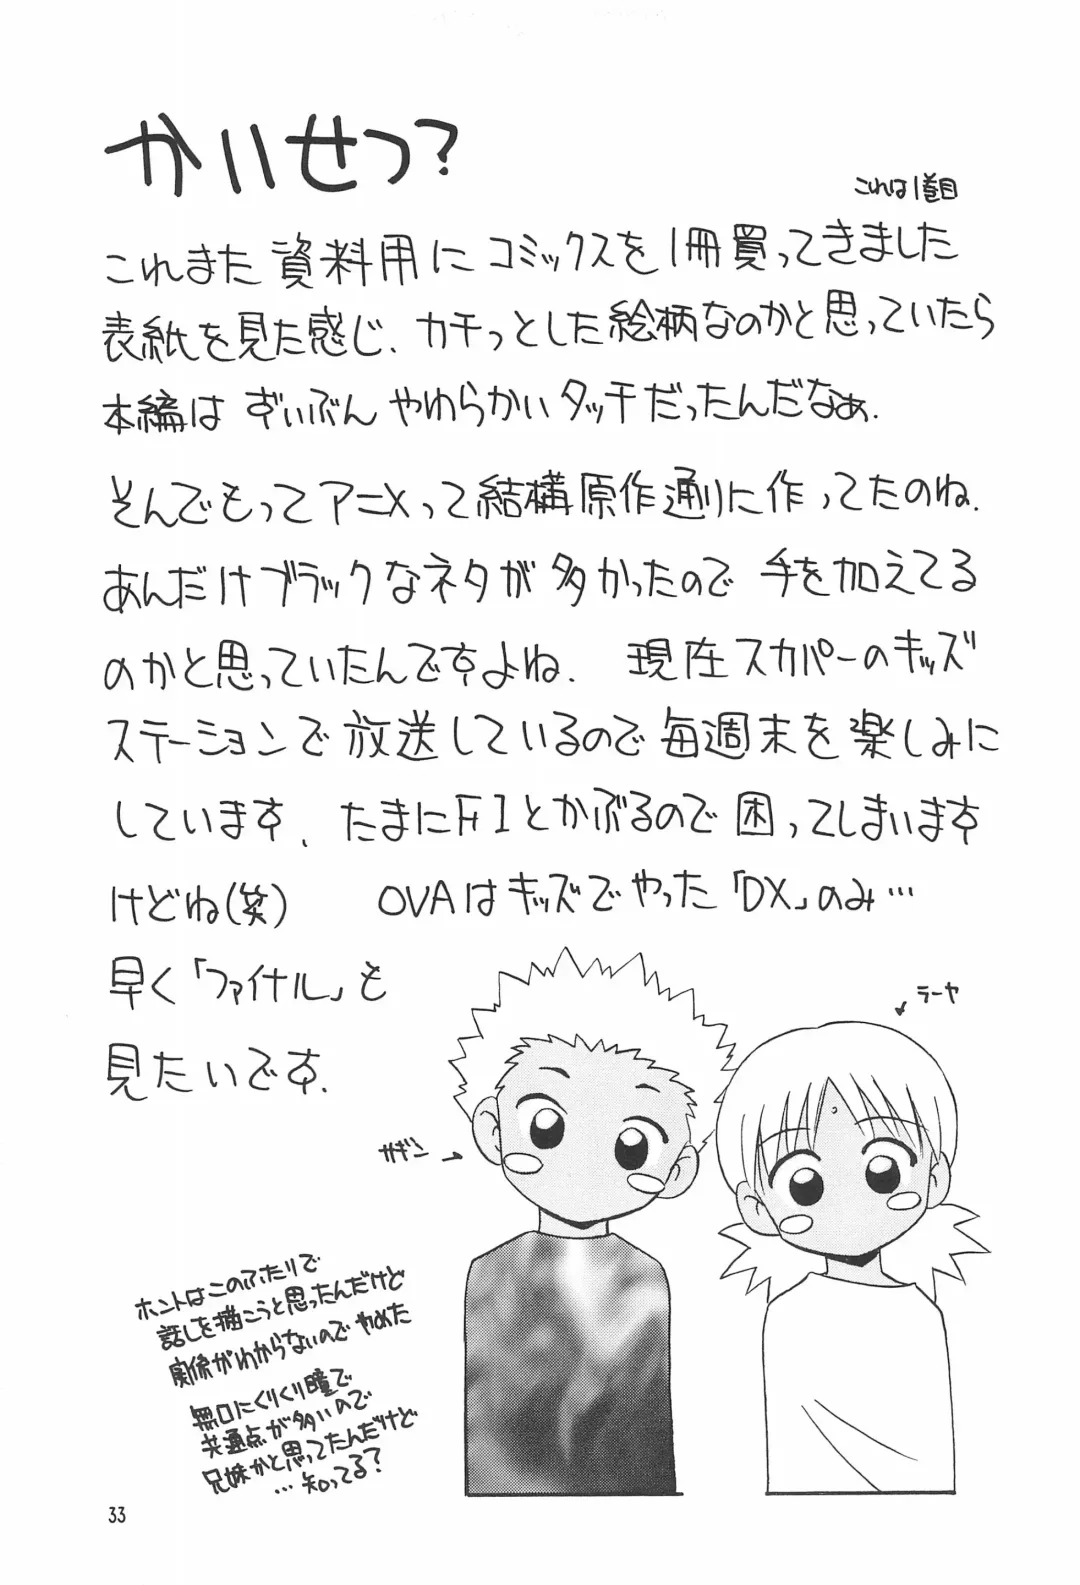 かいせつ?
これは1巻目
これまた資料用にコミックスを1冊買ってきました
表紙を見た感じ、カチっとした絵柄なのかと思っていたら
本編はずいぶんやわらかいタッチだったんだなぁ.
そんでもってアニメって結構原作通りに作ってたのね.
あんだけブラックなネタが多かったので手を加えてる
のかと思っていたんですよね. 現在スカパーのキッズ
ステーションで放送しているので毎週末を楽しみに
しています. たまにF1とかぶるので困ってしまいます
けどね(笑) OVAはキッズでやった「DX」のみ…
早く「ファイナル」も
見たいです.
ラーヤ
ガギン
ホントはこのふたりで
話しを描こうと思ったんだけど
実像がわからないのでやめた
無口にくりくり瞳で
共通点が多いので
兄妹かと思ってたんだけど
…知ってる?
33